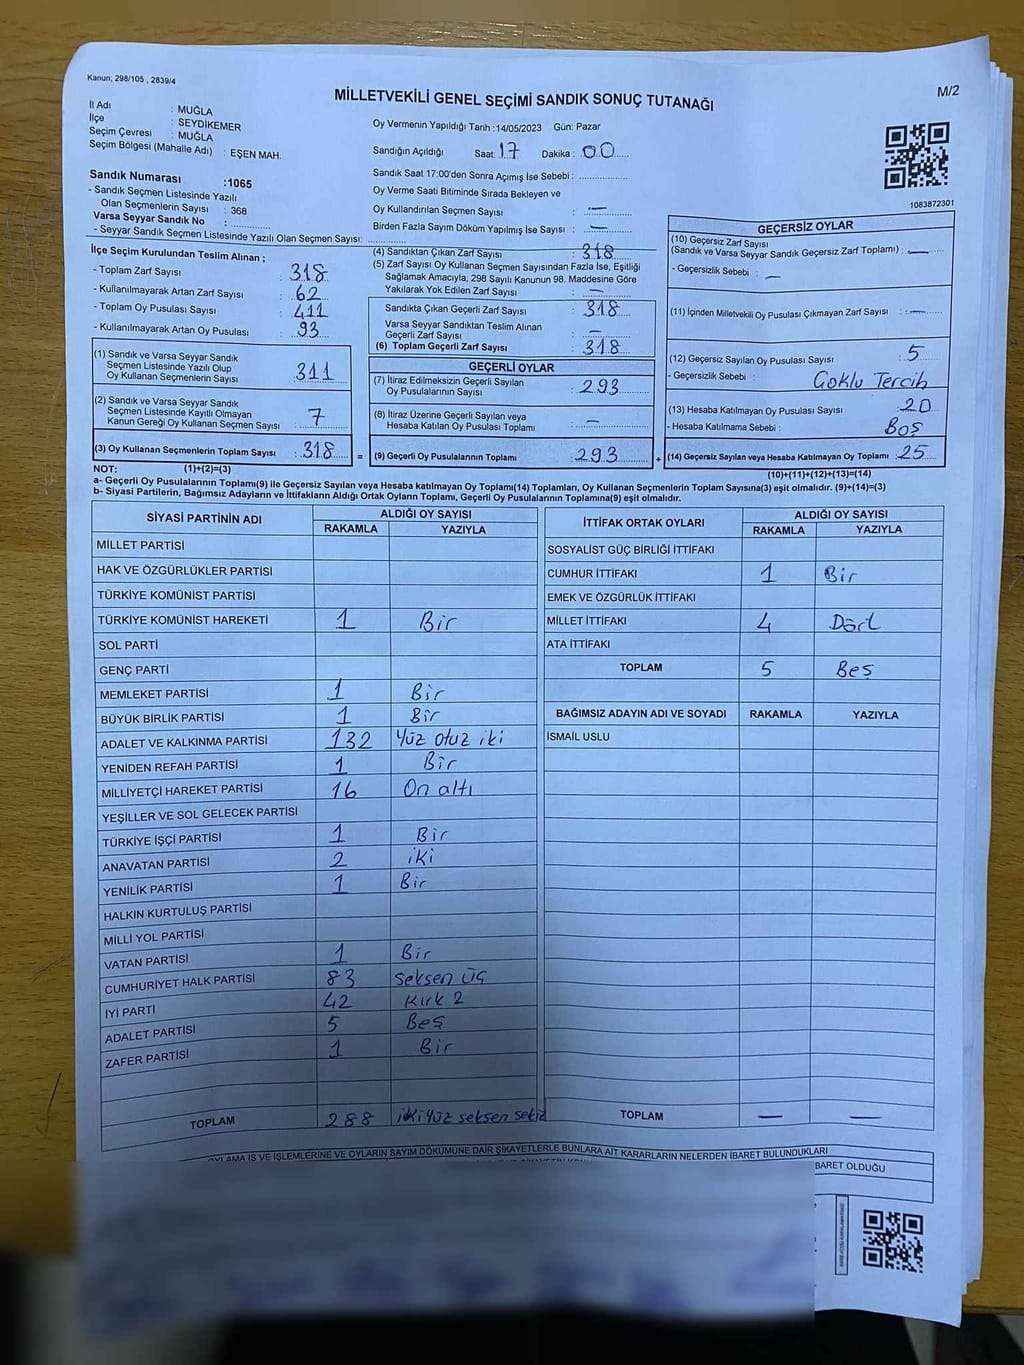 Kanun; 298/105 , 2839/4
M/2
MİLLETVEKİLİ GENEL SEÇİMİ SANDIK SONUÇ TUTANAĞI
İl Adı : MUĞLA
İlçe : SEYDİKEMER
Seçim Çevresi : MUĞLA
Seçim Bölgesi (Mahalle Adı) : EŞEN MAH.
Sandık Numarası :1065
- Sandık Seçmen Listesinde Yazılı
Olan Seçmenlerin Sayısı : 368
Varsa Seyyar Sandık No :
- Seyyar Sandık Seçmen Listesinde Yazılı Olan Seçmen Sayısı:
Oy Vermenin Yapıldığı Tarih :14/05/2023 Gün: Pazar
Sandığın Açıldığı Saat: 17 Dakika : 00
Sandık Saat 17:00'den Sonra Açımış İse Sebebi :
Oy Verme Saati Bitiminde Sırada Bekleyen ve
Oy Kullandırılan Seçmen Sayısı : —
Birden Fazla Sayım Döküm Yapılmış İse Sayısı : —
1083872301
İlçe Seçim Kurulundan Teslim Alınan ;
- Toplam Zarf Sayısı : 318
- Kullanılmayarak Artan Zarf Sayısı : 62
- Toplam Oy Pusulası Sayısı : 411
- Kullanılmayarak Artan Oy Pusulası : 93
(1) Sandık ve Varsa Seyyar Sandık
Seçmen Listesinde Yazılı Olup
Oy Kullanan Seçmenlerin Sayısı : 311
(2) Sandık ve Varsa Seyyar Sandık
Seçmen Listesinde Kayıtlı Olmayan
Kanun Gereği Oy Kullanan Seçmen Sayısı : 7
(3) Oy Kullanan Seçmenlerin Toplam Sayısı : 318 =
(4) Sandıktan Çıkan Zarf Sayısı : 318
(5) Zarf Sayısı Oy Kullanan Seçmen Sayısından Fazla İse, Eşitliği
Sağlamak Amacıyla; 298 Sayılı Kanunun 98. Maddesine Göre
Yakılarak Yok Edilen Zarf Sayısı : —
Sandıkta Çıkan Geçerli Zarf Sayısı : 318
Varsa Seyyar Sandıktan Teslim Alınan
Geçerli Zarf Sayısı : —
(6) Toplam Geçerli Zarf Sayısı : 318
GEÇERLİ OYLAR
(7) İtiraz Edilmeksizin Geçerli Sayılan
Oy Pusulalarının Sayısı : 293
(8) İtiraz Üzerine Geçerli Sayılan veya
Hesaba Katılan Oy Pusulası Toplamı : —
(9) Geçerli Oy Pusulalarının Toplamı : 293 +
GEÇERSİZ OYLAR
(10) Geçersiz Zarf Sayısı
(Sandık ve Varsa Seyyar Sandık Geçersiz Zarf Toplamı) : —
- Geçersizlik Sebebi : —
(11) İçinden Milletvekili Oy Pusulası Çıkmayan Zarf Sayısı : —
(12) Geçersiz Sayılan Oy Pusulası Sayısı : 5
- Geçersizlik Sebebi : Çoklu Tercih
(13) Hesaba Katılmayan Oy Pusulası Sayısı : 20
- Hesaba Katılmama Sebebi : Boş
(14) Geçersiz Sayılan veya Hesaba Katılmayan Oy Toplamı : 25
NOT: (1)+(2)=(3)
(10)+(11)+(12)+(13)=(14)
a- Geçerli Oy Pusulalarının Toplamı(9) ile Geçersiz Sayılan veya Hesaba katılmayan Oy Toplamı(14) Toplamları, Oy Kullanan Seçmenlerin Toplam Sayısına(3) eşit olmalıdır. (9)+(14)=(3)
b- Siyasi Partilerin, Bağımsız Adayların ve İttifakların Aldığı Ortak Oyların Toplamı, Geçerli Oy Pusulalarının Toplamına(9) eşit olmalıdır.
SİYASİ PARTİNİN ADI ALDIĞI OY SAYISI
RAKAMLA YAZIYLA
MİLLET PARTİSİ
HAK VE ÖZGÜRLÜKLER PARTİSİ
TÜRKİYE KOMÜNİST PARTİSİ
TÜRKİYE KOMÜNİST HAREKETİ 1 Bir
SOL PARTİ
GENÇ PARTİ
MEMLEKET PARTİSİ 1 Bir
BÜYÜK BİRLİK PARTİSİ 1 Bir
ADALET VE KALKINMA PARTİSİ 132 Yüz otuz iki
YENİDEN REFAH PARTİSİ 1 Bir
MİLLİYETÇİ HAREKET PARTİSİ 16 On altı
YEŞİLLER VE SOL GELECEK PARTİSİ
TÜRKİYE İŞÇİ PARTİSİ 1 Bir
ANAVATAN PARTİSİ 2 iki
YENİLİK PARTİSİ 1 Bir
HALKIN KURTULUŞ PARTİSİ
MİLLİ YOL PARTİSİ
VATAN PARTİSİ 1 Bir
CUMHURİYET HALK PARTİSİ 83 Seksen üç
İYİ PARTİ 42 Kırk 2
ADALET PARTİSİ 5 Beş
ZAFER PARTİSİ 1 Bir
TOPLAM 288 iki yüz seksen sekiz
İTTİFAK ORTAK OYLARI ALDIĞI OY SAYISI
RAKAMLA YAZIYLA
SOSYALİST GÜÇ BİRLİĞİ İTTİFAKI
CUMHUR İTTİFAKI 1 Bir
EMEK VE ÖZGÜRLÜK İTTİFAKI
MİLLET İTTİFAKI 4 Dört
ATA İTTİFAKI
TOPLAM 5 Beş
BAĞIMSIZ ADAYIN ADI VE SOYADI RAKAMLA YAZIYLA
İSMAİL USLU
TOPLAM — —
OYLAMA İŞ VE İŞLEMLERİNE VE OYLARIN SAYIM DÖKÜMÜNE DAİR ŞİKAYETLERLE BUNLARA AİT KARARLARIN NELERDEN İBARET BULUNDUKLARI
BARET OLDUĞU